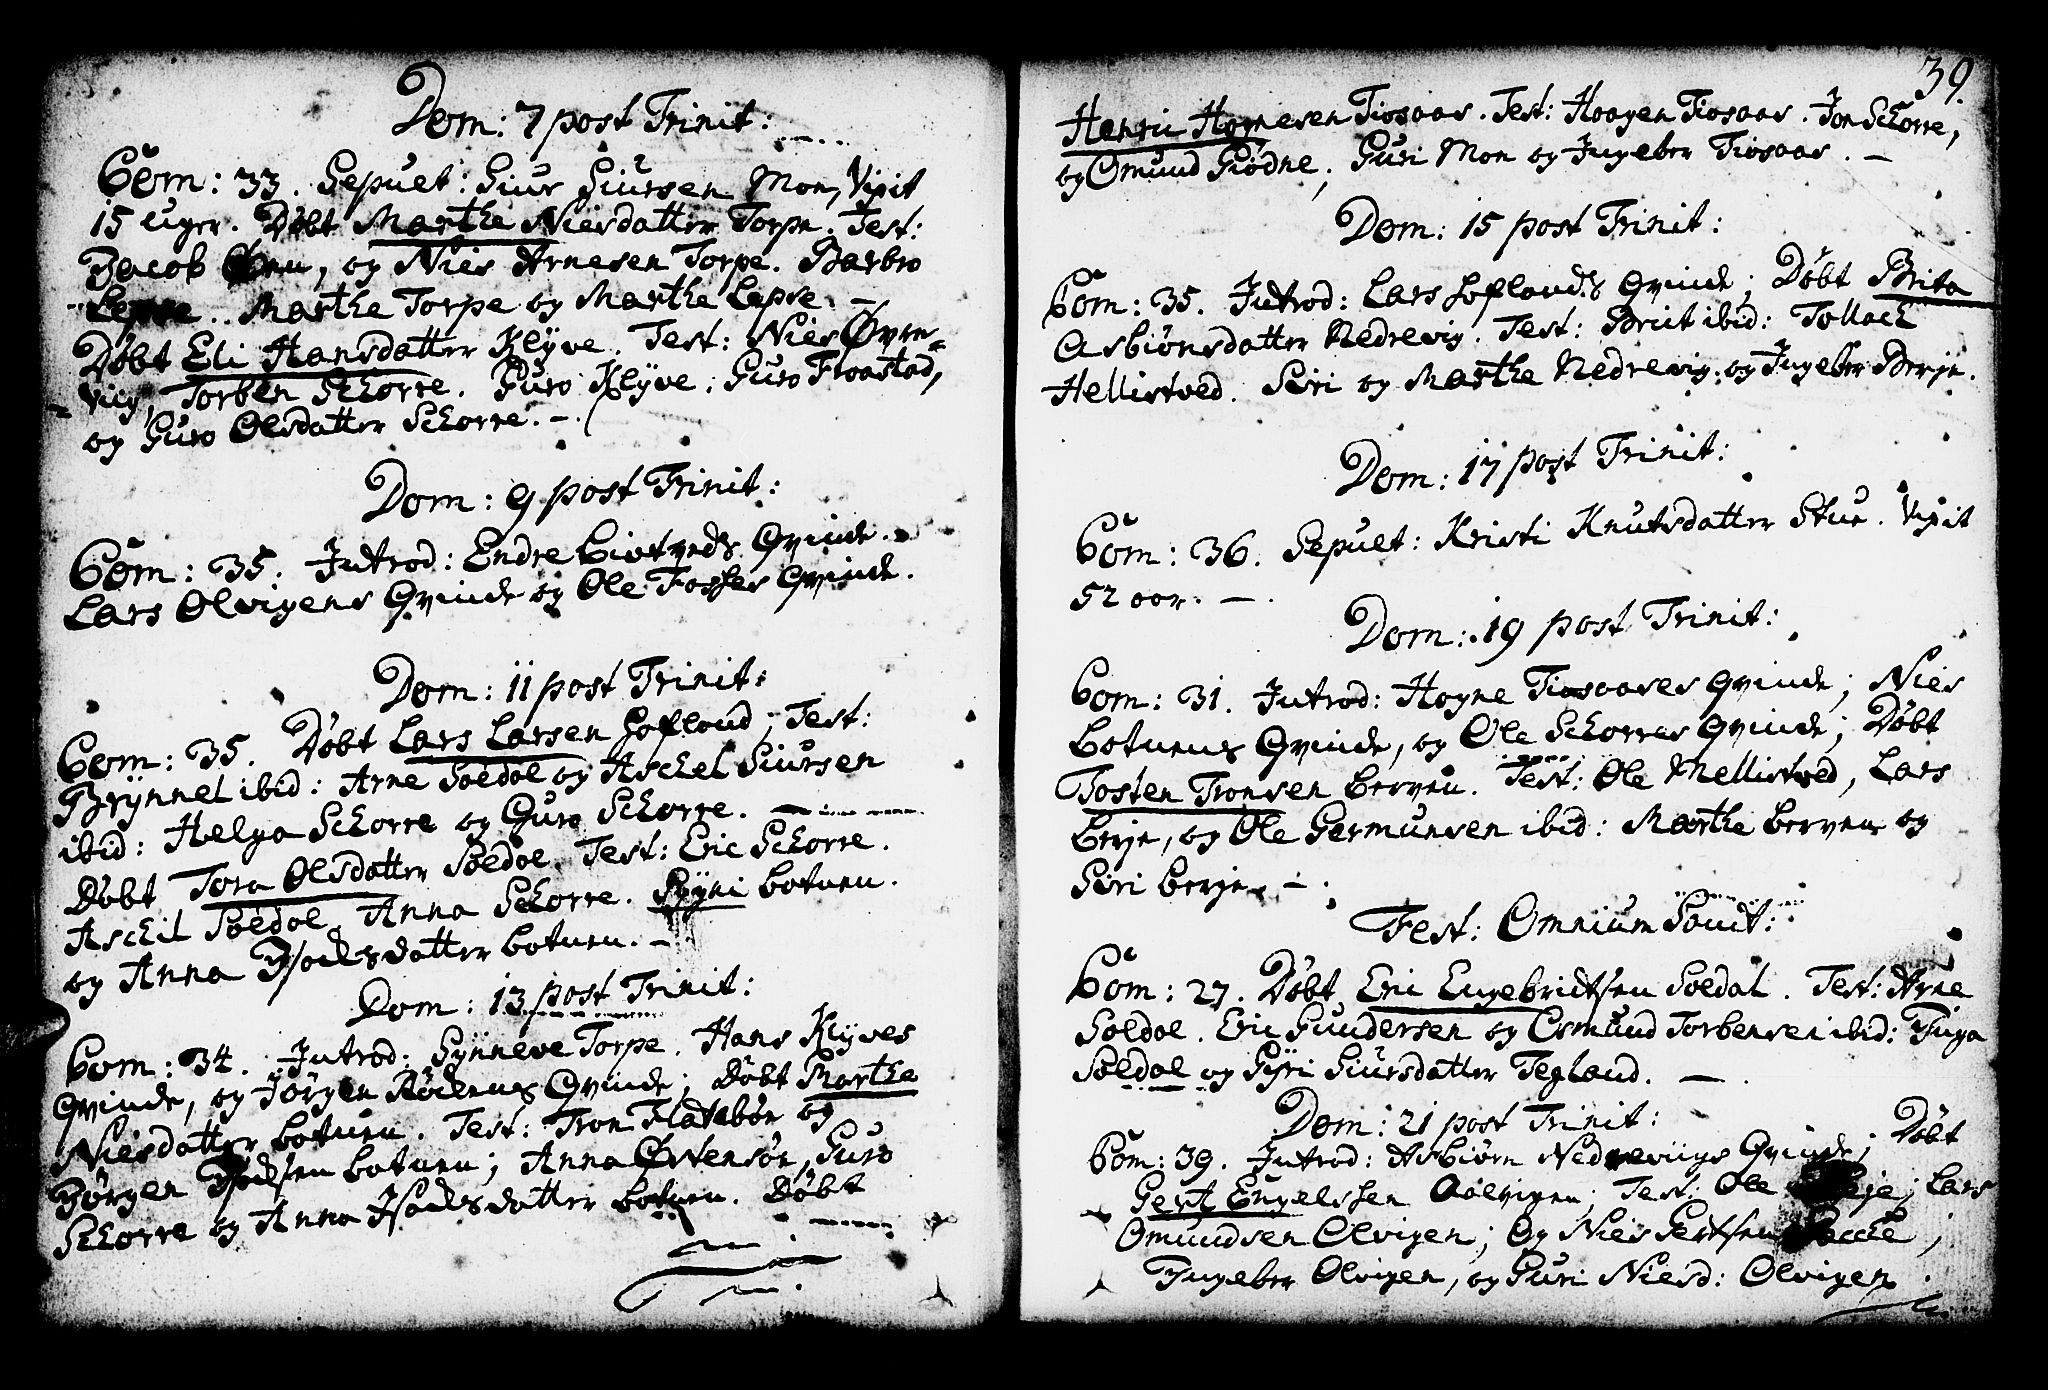 Dom: 7 post Trinit:
Com: 33. Sepult: Siur Siursen Mon, Vixit
15 Uger. Døbt Marthe Nielsdatter Torpe. Test:
Jacob, og Niels Arnesen Torpe. Barbro
Lepse. Marthe Torpe og Marthe Lepse. —
Døbt Eli Hansdatter Klÿve. Test: Niels Øvre-
Vieg, Torben Schorre. Guro Klÿve, Guro Floastad,
og Guro Olsdatter Schorre. —
Dom: 9 post Trinit:
Com: 35. Introd: Endre Qvinde.
Lars Olvigens Qvinde og Ole Fosses Qvinde.
Dom: 11 post Trinit:
Com: 35. Døbt Lars Larsen Sofland; Test:
Brÿnnel ibid: Arne Soldal og Aschel Siursen
ibid: Helga Schorre og Guro Schorre. —
Døbt Tora Olsdatter Soldal. Test: Eric Schorre.
Aschil Soldal. Anna Schorre. Botnen.
og Anna Isachsdatter Botnen. —
Dom: 13 post Trinit:
Com: 34. Introd: Sÿnneve Torpe. Hans Klÿves
Qvinde, og Jørgen Qvinde; Døbt Marthe
Nielsdatter Botnen. Test: Tron Flatebøe og
Jørgen Isachsen Botnen; Anna Østensøe, Guro
Schorre og Anna Isachsdatter Botnen. Døbt
39.
Henric Hognesen Tiosaas. Test: Haagen Tiosaas. Jon Schorre,
og Omund Giødne, Guri Mon og Ingeber Tiosaas. —
Dom: 15 post Trinit:
Com: 35. Introd: Lars Soflands Qvinde; Døbt Brita
Asbiønsdatter Nedrevig. Test: Brut ibid: Tollach
Hellistved. Siri og Marthe Nedrevig, og Ingeber Berje.
Dom: 17 post Trinit:
Com: 36. Sepult: Kristi Knutsdatter Stue. Vixit
52 aar. —
Dom: 19 post Trinit:
Com: 31. Introd: Hogne Tiosaases Qvinde; Niels
Botnens Qvinde, og Ole Schorres Qvinde; Døbt
Tosten Tronsen Berven. Test: Ole Mellistved, Lars
Berje, og Ole Germunsen ibid: Marthe Berven og
Siri Berje. —
Fest: Omnium Sanct:
Com: 27. Døbt Eric Engebrichtsen Soldal. Test: Arne
Soldal. Eric Gundersen og Osmund Torbensen ibid: Inga
Soldal og Siri Siursdatter Tegland. —
Dom: 21 post Trinit:
Com: 39. Introd: Asbiørn Nedreviigs Qvinde; Døbt
Gert Engelssen Aalvigen; Test: Ole; Lars
Omundsen Olvigen; Og Niels Gertsen;
Ingeber Olvigen, og Guri Nielsd: Olvigen.